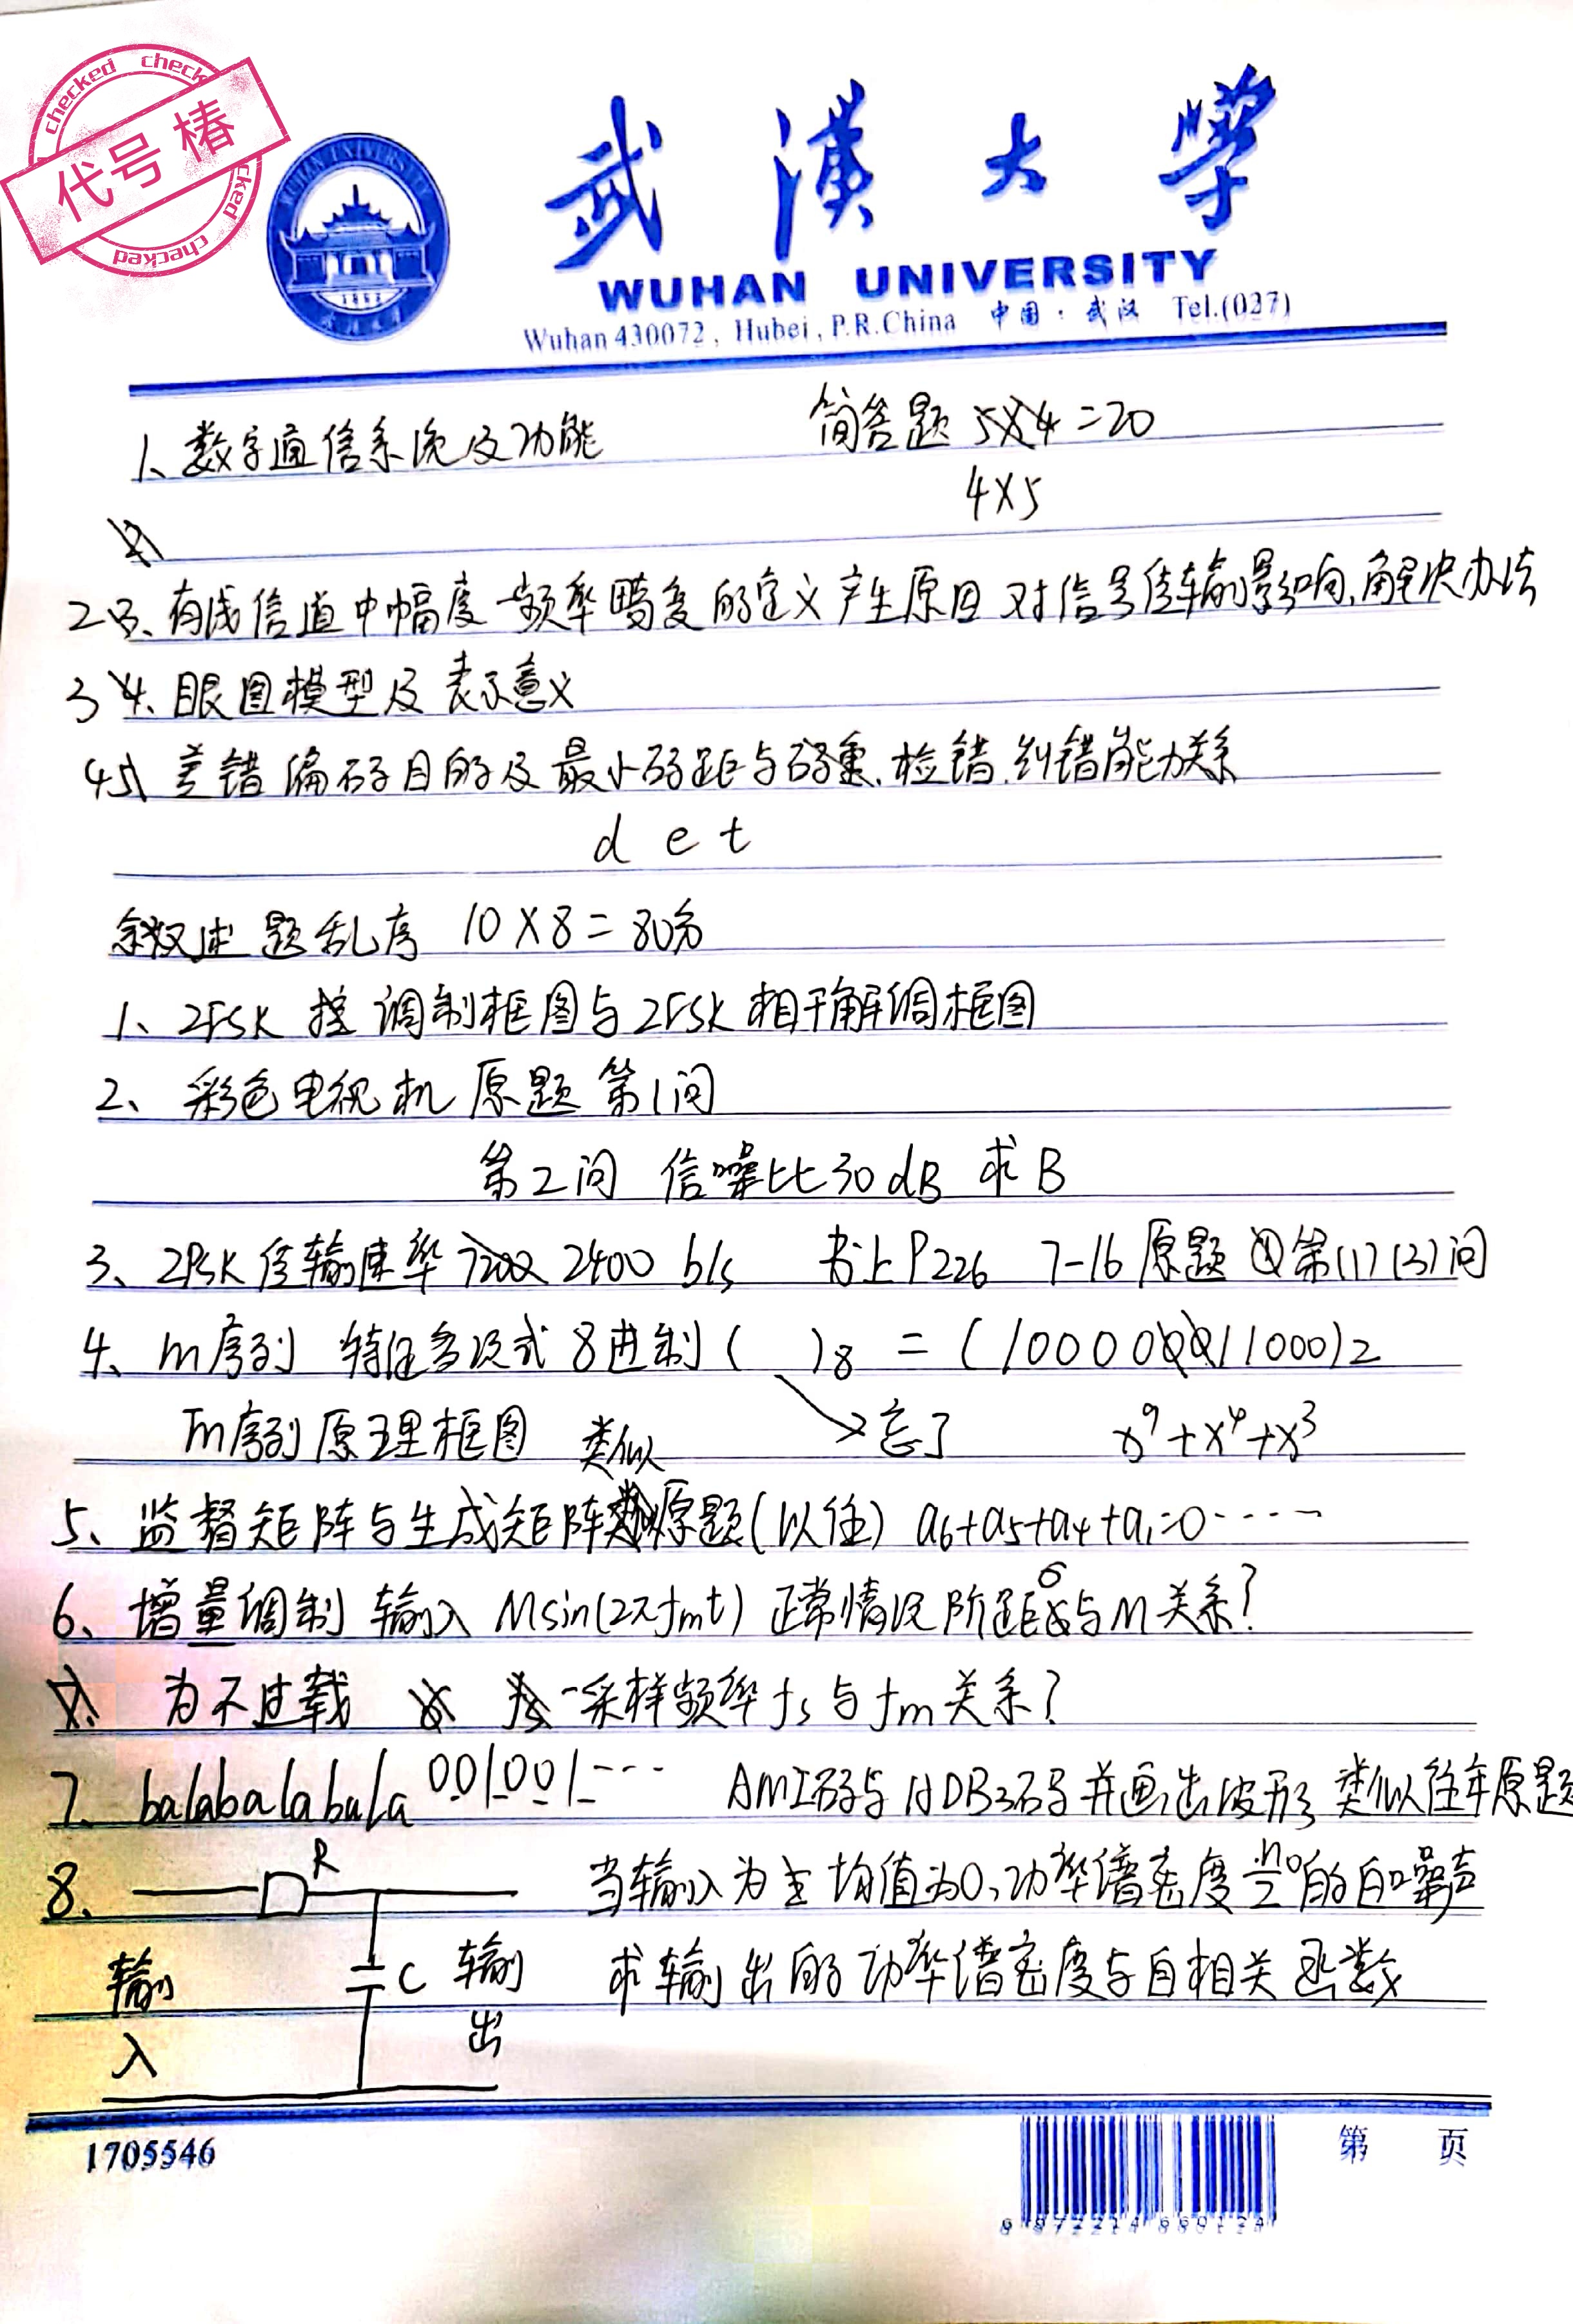 checked check
代号 椿
cked
checked
WUHAN UNIVERSITY
1893
武漢大學
WUHAN UNIVERSITY
Wuhan 430072, Hubei, P.R.China 中国·武汉 Tel.(027)
1、数字通信系统及功能 简答题 5×4=20
4×5
2、有线信道中幅度-频率畸变的定义产生原因 对信号传输影响,解决办法
3、眼图模型及表示意义
4、差错编码目的及最小码距与码重、检错、纠错能力关系
d e t
叙述题乱序 10×8=80分
1、2FSK 调制框图与2FSK相干解调框图
2、彩色电视机原题 第1问
第2问 信噪比30dB 求B
3、2PSK传输速率 2400 b/s 书上P226 7-16原题 第(1)(3)问
4、m序列 特征多项式 8进制( )8 = (1000011000)2
m序列原理框图 类似 忘了 x⁹+x⁴+x³
5、监督矩阵与生成矩阵 原题(以往) a6+a5+a4+a1=0----
6、增量调制 输入 Msin(2πfmt) 正常情况阶距δ与M关系?
为不过载 采样频率fs与fm关系?
7、balabalabala 001001--- AMI码与HDB3码并画出波形 类似往年原题
8、 R 当输入为 均值为0,功率谱密度n0/2的白噪声
输入 C 输出 求输出的功率谱密度与自相关函数
1705546 第 页